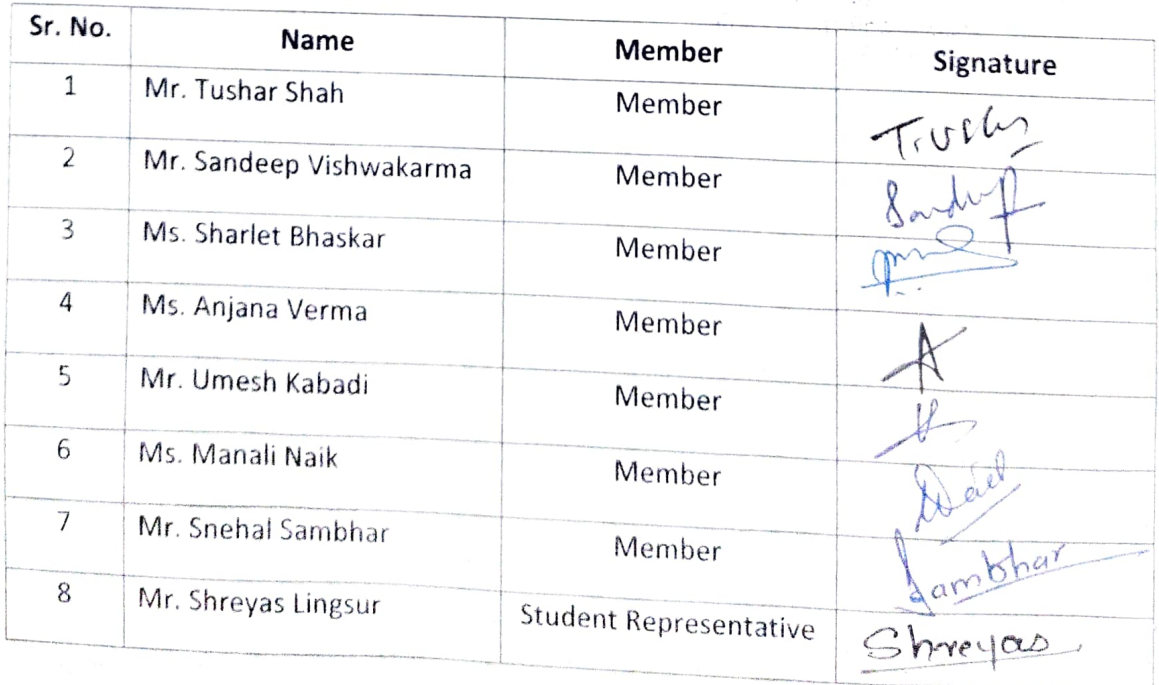 Sr. No. Name Member Signature
1 Mr. Tushar Shah Member
2 Mr. Sandeep Vishwakarma Member
3 Ms. Sharlet Bhaskar Member
4 Ms. Anjana Verma Member
5 Mr. Umesh Kabadi Member
6 Ms. Manali Naik Member
7 Mr. Snehal Sambhar Member Sambhar
8 Mr. Shreyas Lingsur Student Representative Shreyas